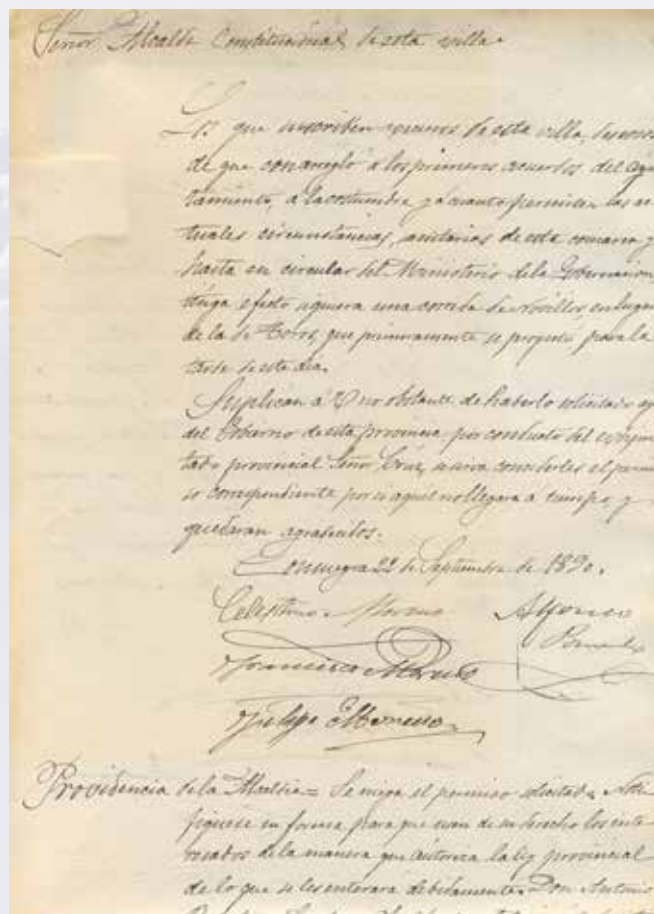 Señor Alcalde Constitucional de esta villa.
Los que suscriben vecinos de esta villa, deseosos
de que con arreglo a los primeros acuerdos del Ayun
tamiento, a la costumbre y a cuanto permiten las ac
tuales circunstancias sanitarias de esta comarca y
hasta en circular del Ministerio de la Gobernacion,
tenga efecto siquiera una corrida de novillos, en lugar
de la de Toros, que primeramente se proyectó para la
tarde de este dia.
Suplican á V no obstante de haberlo solicitado
del Gobierno de esta provincia por conducto del
tado provincial Señor Cruz, se sirva concederles el permi
so correspondiente por si aquel no llegara a tiempo, y
quedaran agradecidos.
Consuegra 22 de Septiembre de 1890.
Celestino Moreno Alfonso
Francisco Moreno
Felipe Moreno
Providencia de la Alcaldia = Se niega el permiso solicitado. Noti
fiquese en forma para que usen de su derecho los inte
resados de la manera que autoriza la ley provincial
de lo que se les enterará debidamente. Don Antonio